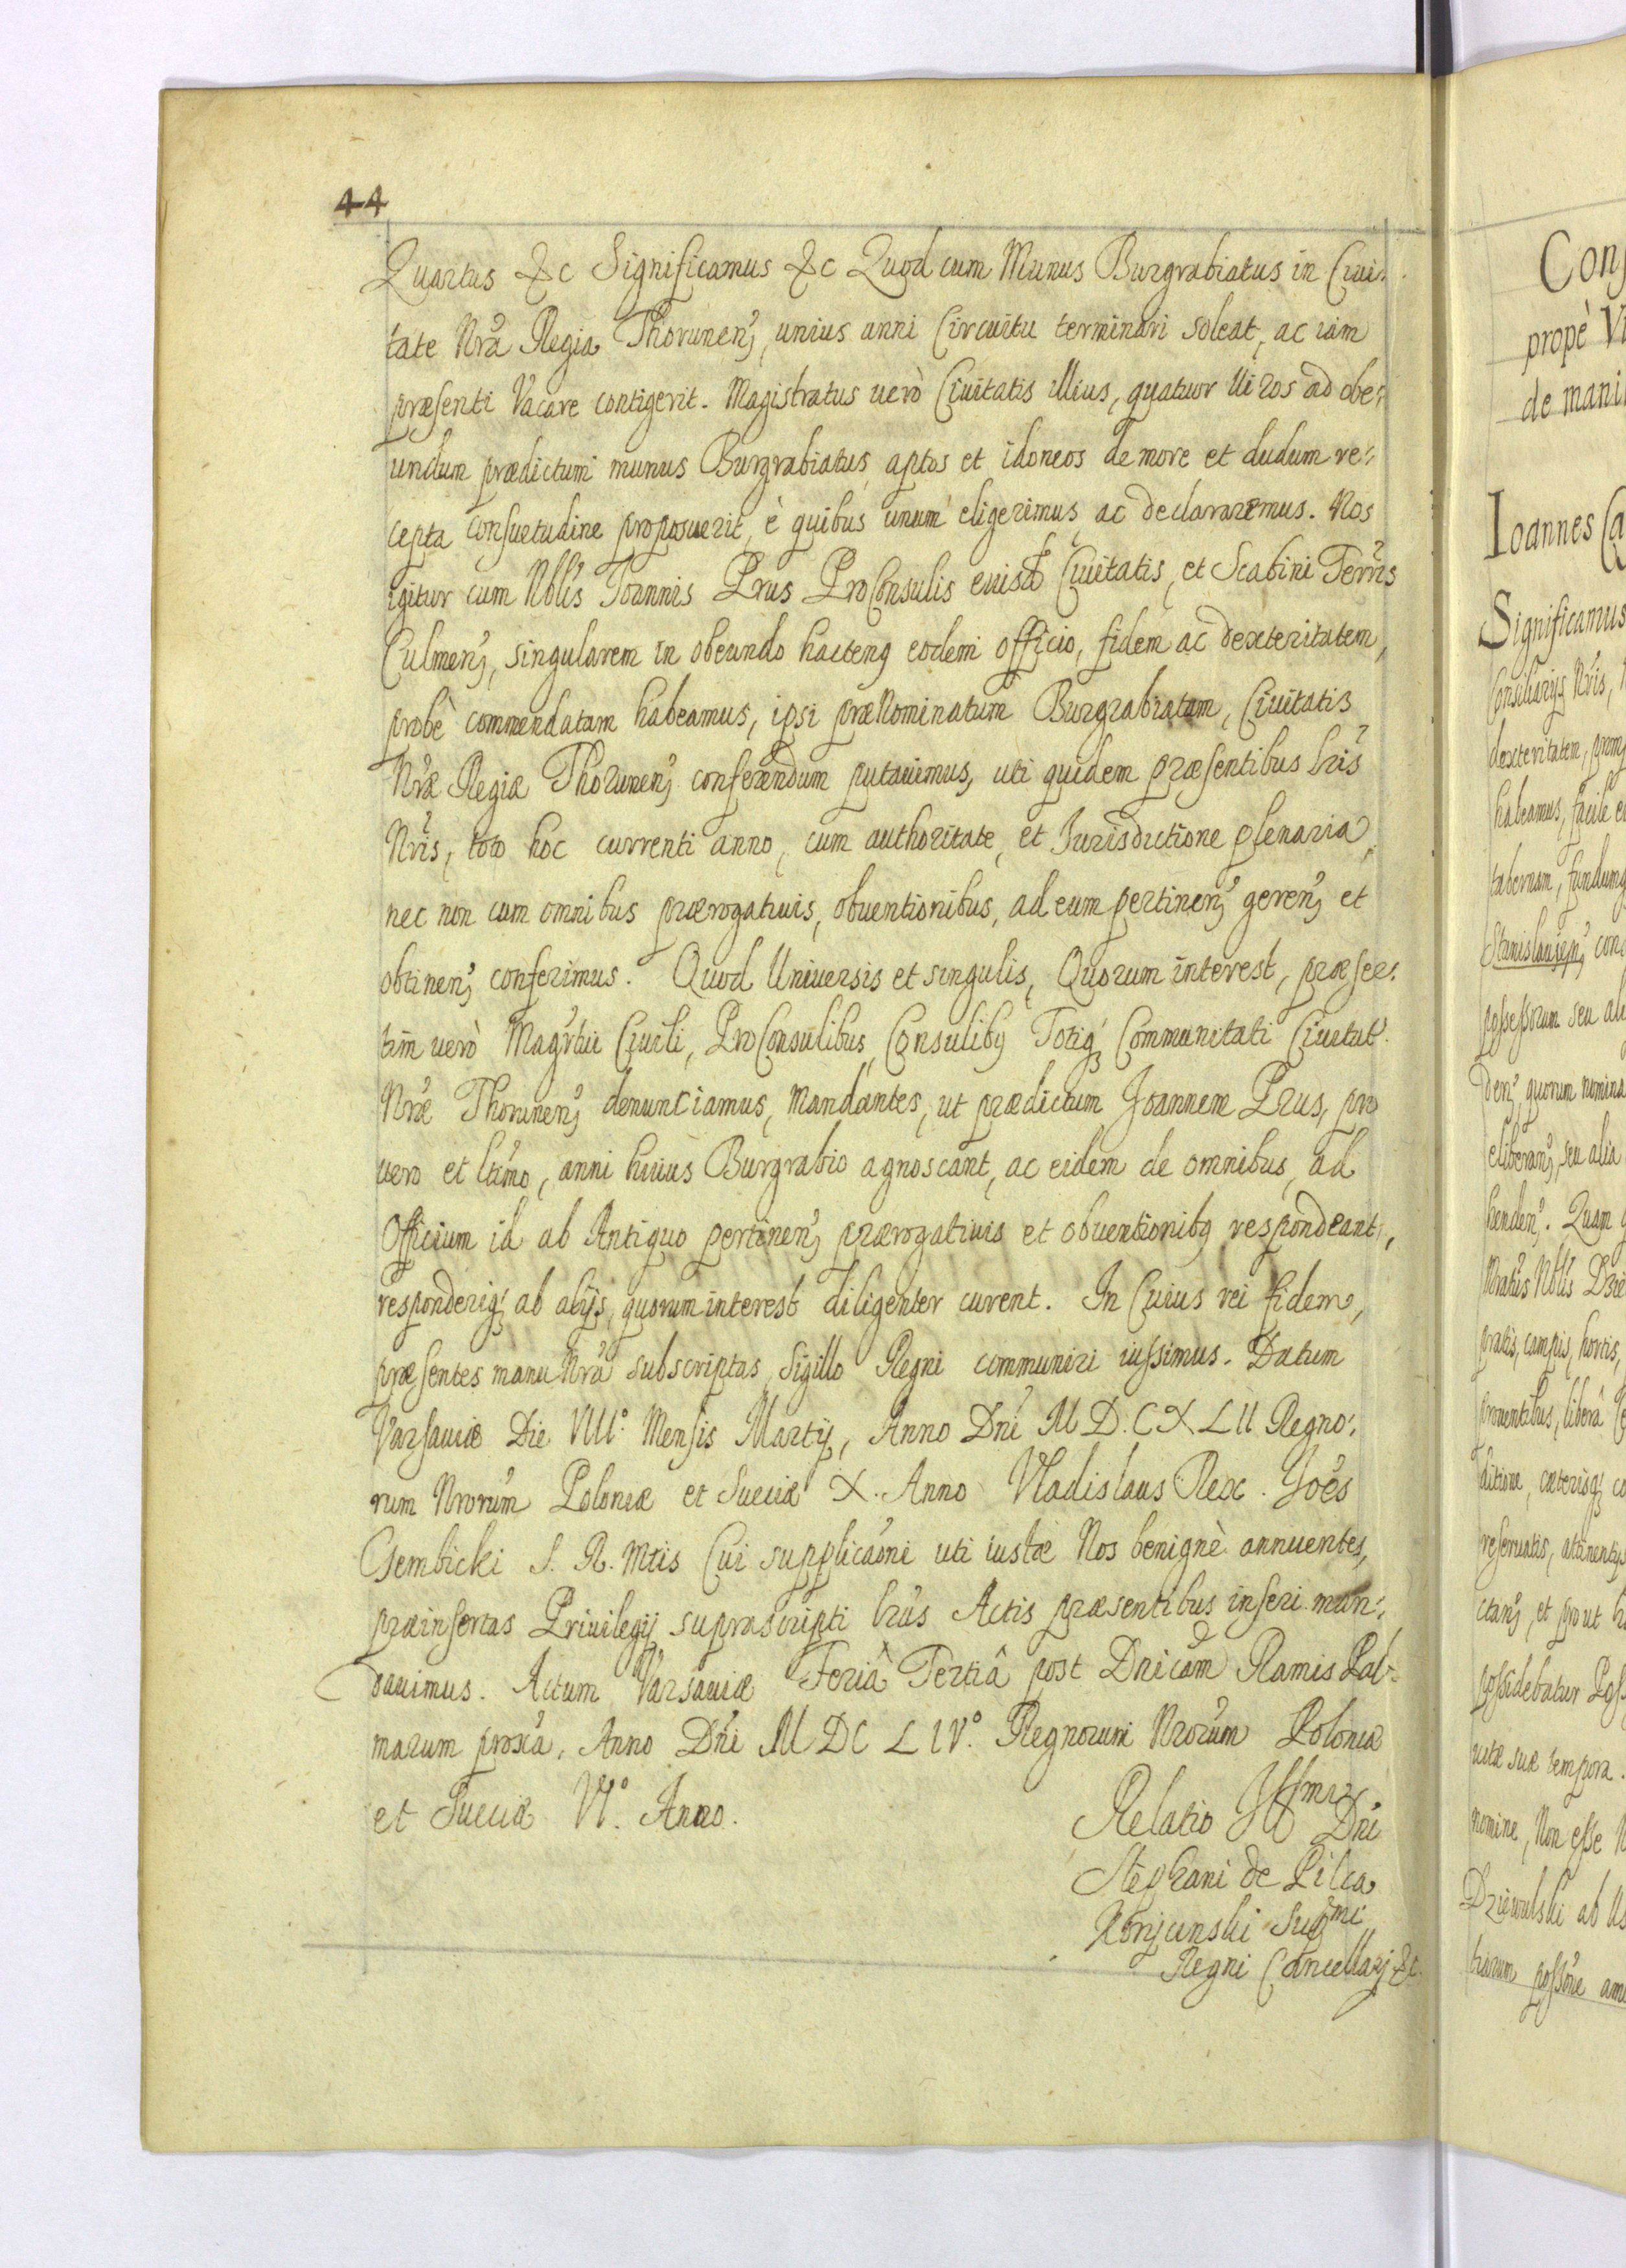 44
Quartus &c Significamus &c Quod cum Munus Burgrabiatus in Ciui-
tate Nrã Regia Thorunen, unius anni Circuitu terminari soleat, ac iam
præsenti Vacare contigerit. Magistratus uerò Ciuitatis illius, quatuor Uiros ad obe-
undum prædictum munus Burgrabiatus aptos et idoneos de more et dudum re-
cepta consuetudine proposuerit, è quibus unum eligerimus ac declararemus. Nos
igitur cum Nblis Ioannis Prus ProConsulis eiusd Ciuitatis, et Scabini Terris
Culmen, singularem in obeundo hacteng eodem officio, fidem ac dexteritatem,
probè commendatam habeamus, ipsi præNominatum Burgrabiatum, Ciuitatis
Nræ Regiæ Thorunen conferendum putauimus, uti quidem præsentibus lris
Nris, toto hoc currenti anno, cum authoritate, et Jurisdictione plenaria,
nec non cum omnibus prærogatiuis, obuentionibus, ad eum pertinen, geren, et
obtinen, conferimus. Quod Uniuersis et singulis, Quorum interest, præser-
tim uerò Magrtui Ciuili, ProConsulibus, Consuliby Totiq Communitati Ciuitat
Nræ Thorunen, denunciamus, Mandantes, ut prædictum Joannem Prus, pro
uero et ltimo, anni huius Burgrabio agnoscant, ac eidem de omnibus, ad
Officium id ab Antiquo pertinen, prærogatiuis et obuentionibq respondeant,
responderiq ab alijs, quorum interest diligenter curent. In Cuius rei fidem,
præsentes manu Nrã subscriptas, Sigillo Regni communiri iussimus. Datum
Varsauiæ Die VIII° Mensis Martij, Anno Dni M D. C X L II Regno-
rum Nrorum Poloniæ et Sueciæ X. Anno Vladislaus Rex. Joes
Gembicki S. R. Mtis Cui supplicaoni uti iustæ Nos benignè annuentes,
præinsertas Priuilegij suprascripti lras Actis præsentibus inseri man-
dauimus. Actum Varsauiæ Feriâ Tertiâ post Dnicam Ramis Pal-
marum proxa, Anno Dni M DC L IV.° Regnorum Nrorum Poloniæ
et Sueciæ VI.° Anno.
Relatio Illmi Dni
Stephani de Pilca
Korycinski Supmi
Regni Cancellarj &c.
Cons
propè
de mani
Ioannes Ca
Significamus
Consiliarijs Nris,
dexteritatem, prom
habeamus, facile
tabernam, fundumq
Stanislausen, con
possessorum seu ali
den, quorum nomina
eliberan, seu alia
henden. Quam
Nblis
pratis, campis, hortis,
prouentibus, liberâ
ditione, cæterisq co
reseruatis, attinentijs
ctan, et prout
possidebatur Poss
uitæ suæ tempora.
nomine, Non esse
Dziewulski ab
trarum possone